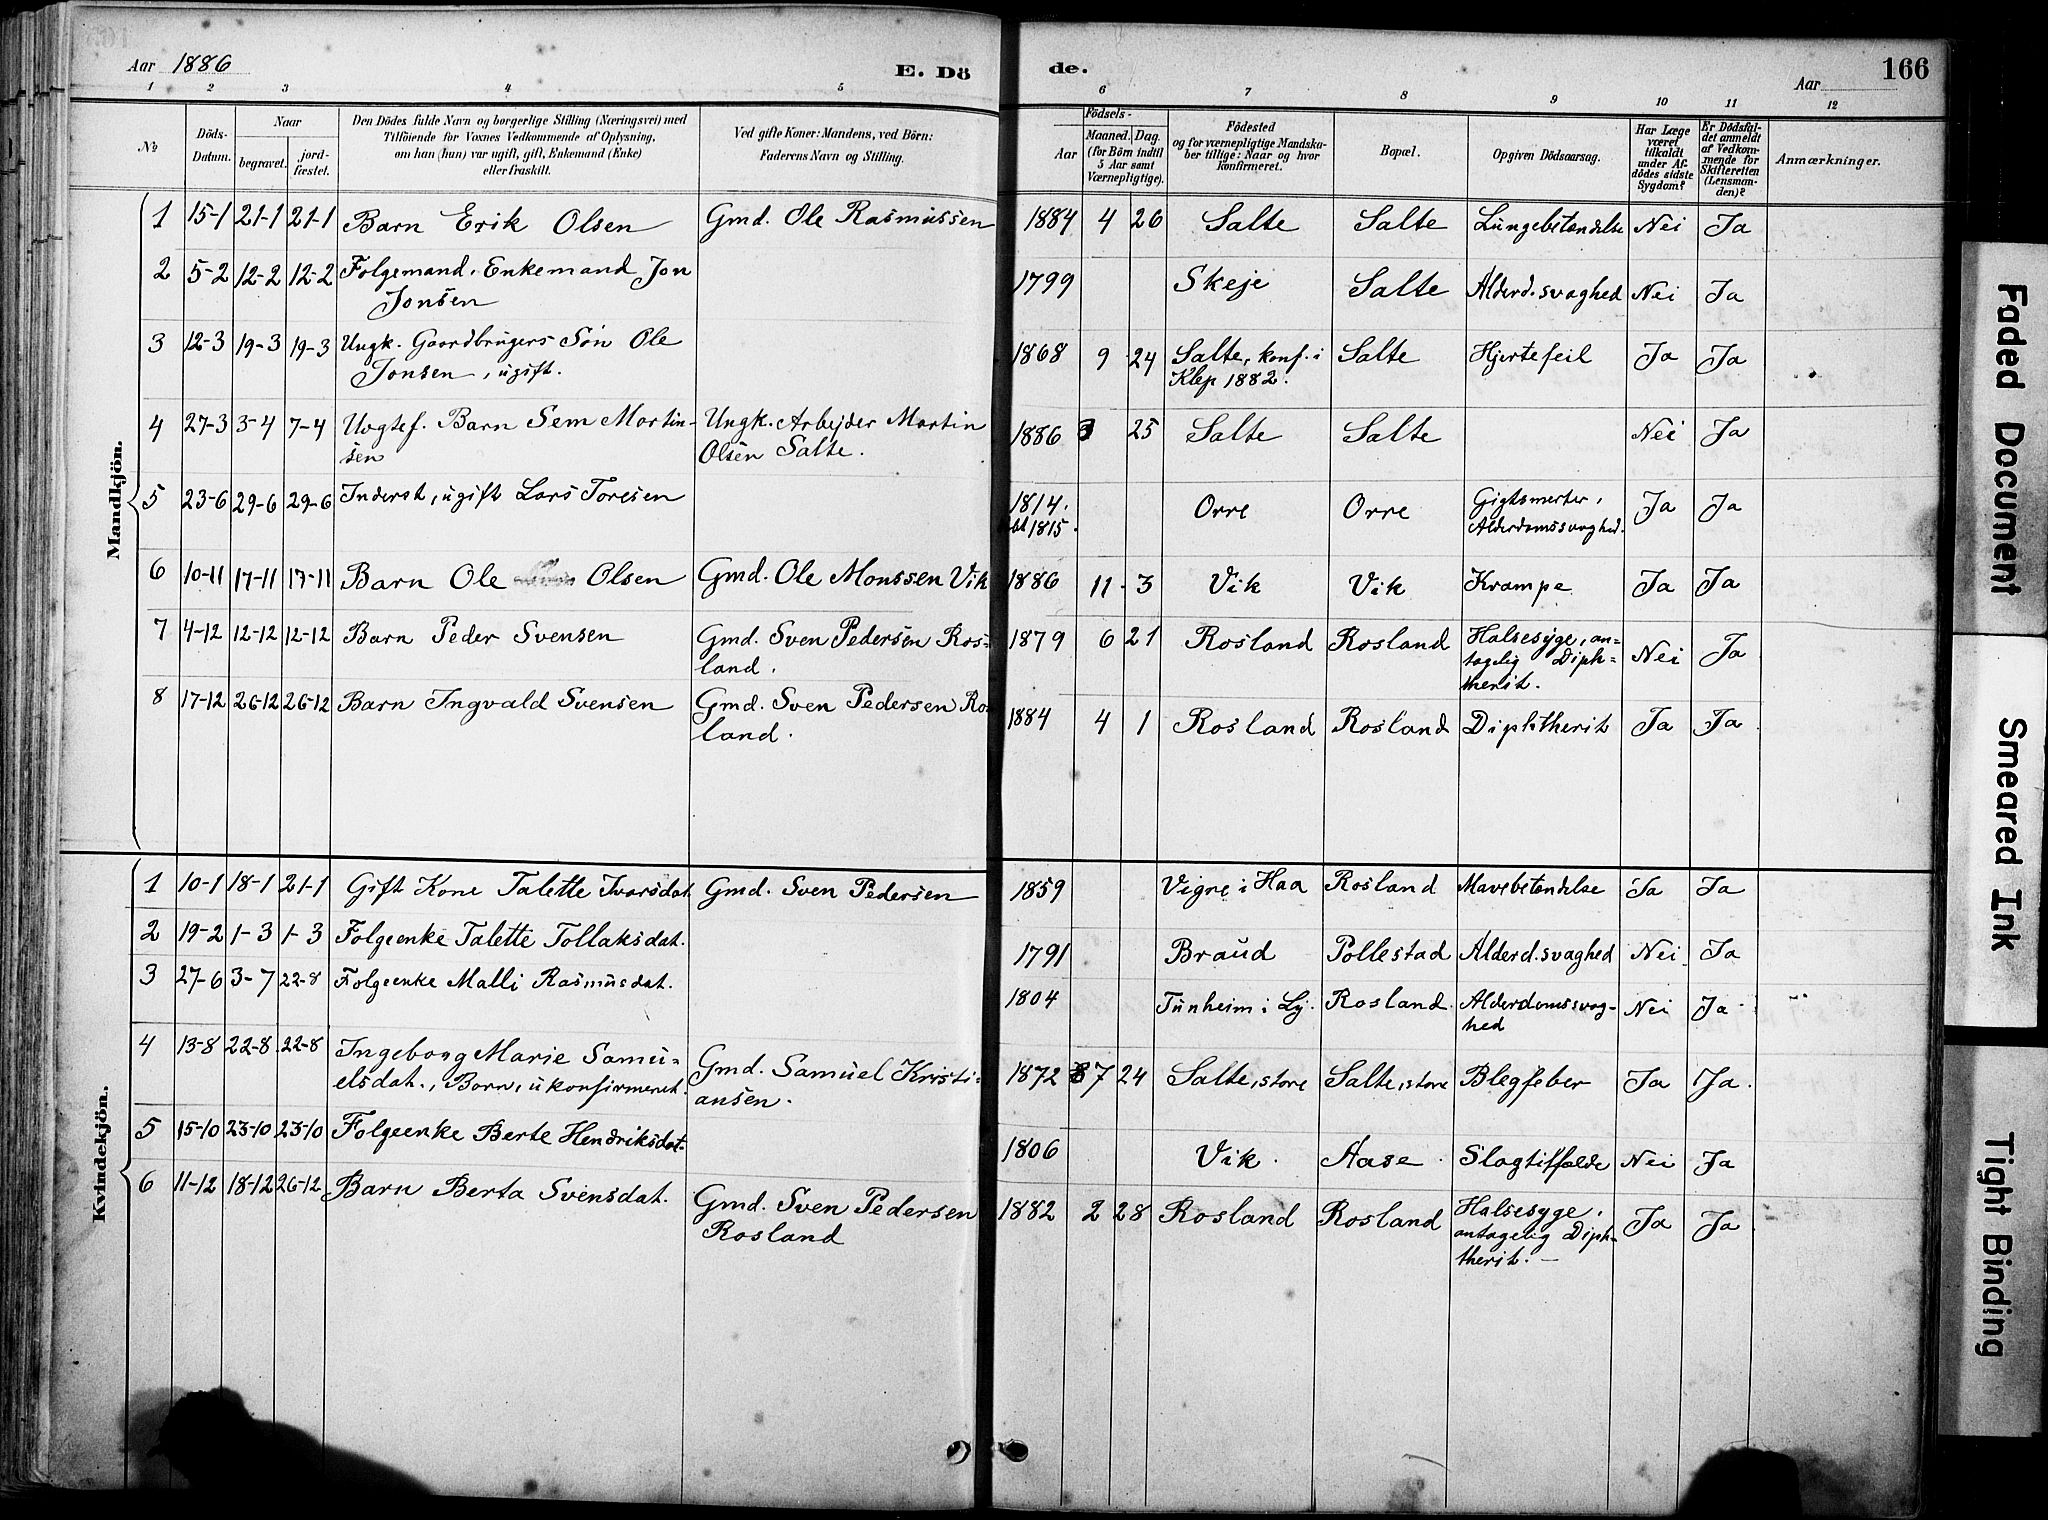 Aar 1886 E. Dö de. Aar 166
1 2 3 4 5 6 7 8 9 10 11 12
No
Döds-Datum.
Naar
begravet.
jord-fæstet.
Den Dödes fulde Navn og borgerlige Stilling (Næringsvei) med
Tilföiende for Voxnes Vedkommende af Oplysning,
om han (hun) var ugift, gift, Enkemand (Enke)
eller fraskilt.
Ved gifte Koner: Mandens, ved Börn:
Faderens Navn og Stilling.
Födsels-
Aar Maaned. Dag.
(for Börn indtil
5 Aar samt
Værnepligtige).
Födested
og for værnepligtige Mandska-
ber tillige: Naar og hvor
konfirmeret.
Bopæl.
Opgiven Dödsaarsag.
Har Læge
været
tilkaldt
under Af-
dödes sidste
Sygdom?
Er Dödsfal-
det anmeldt
af Vedkom-
mende for
Skifteretten
(Lensman-
den)?
Anmærkninger.
Mandkjön.
1 15-1 21-1 21-1 Barn Erik Olsen Gmd. Ole Rasmussen 1884 4 26 Salte Salte Lungebetændelse Nei Ja
2 5-2 12-2 12-2 Folgemand, Enkemand Jon
Jonsen 1799 Skeje Salte Alderd.svaghed Nei Ja
3 12-3 19-3 19-3 Ungk. Gaardbrugers Søn Ole
Jonsen, ugift. 1868 9 24 Salte, konf. i
Klep 1882. Salte Hjertefeil Ja Ja
4 27-3 3-4 7-4 Uegtef. Barn Sem Martin-
sen Ungk. Arbejder Martin
Olsen Salte. 1886 3 25 Salte Salte Nei Ja
5 23-6 29-6 29-6 Inderst, ugift Lars Toresen 1814.
bl 1815. Orre Orre Gigtsmerter,
Alderdomssvaghed. Ja Ja
6 10-11 17-11 17-11 Barn Ole Olsen Gmd. Ole Monssen Vik 1886 11 3 Vik Vik Krampe Ja Ja
7 4-12 12-12 12-12 Barn Peder Svensen Gmd. Sven Pedersen Ros-
land. 1879 6 21 Rosland Rosland Halsesyge, an-
tagelig Diph-
therit. Nei Ja
8 17-12 26-12 26-12 Barn Ingvald Svensen Gmd. Sven Pedersen Ros
land. 1884 4 1 Rosland Rosland Diphtherit Ja Ja
Kvindekjön.
1 10-1 18-1 21-1 Gift Kone Talette Ivarsdat. Gmd. Sven Pedersen 1859 Vigre i Haa Rosland Mavebetændelse Ja Ja
2 19-2 1-3 1-3 Folgeenke Talette Tollaksdat. 1791 Braud Pollestad Alderd.svaghed Nei Ja
3 27-6 3-7 22-8 Folgeenke Malli Rasmusdat. 1804 Tunheim i Ly. Rosland. Alderdomssvag-
hed Nei Ja
4 13-8 22-8 22-8 Ingeborg Marie Samu-
elsdat., Barn, ukonfirmeret. Gmd. Samuel Kristi-
ansen. 1872 7 24 Salte, store Salte, store Blegfeber Ja Ja.
5 15-10 23-10 23-10 Folgeenke Berte Hendriksdat. 1806 Vik. Aase. Slagtilfælde Nei Ja
6 11-12 18-12 26-12 Barn Berta Svensdat. Gmd. Sven Pedersen
Rosland 1882 2 28 Rosland Rosland Halsesyge,
antagelig Diph-
therit. Ja Ja
Faded Document
Smeared Ink
Tight Binding